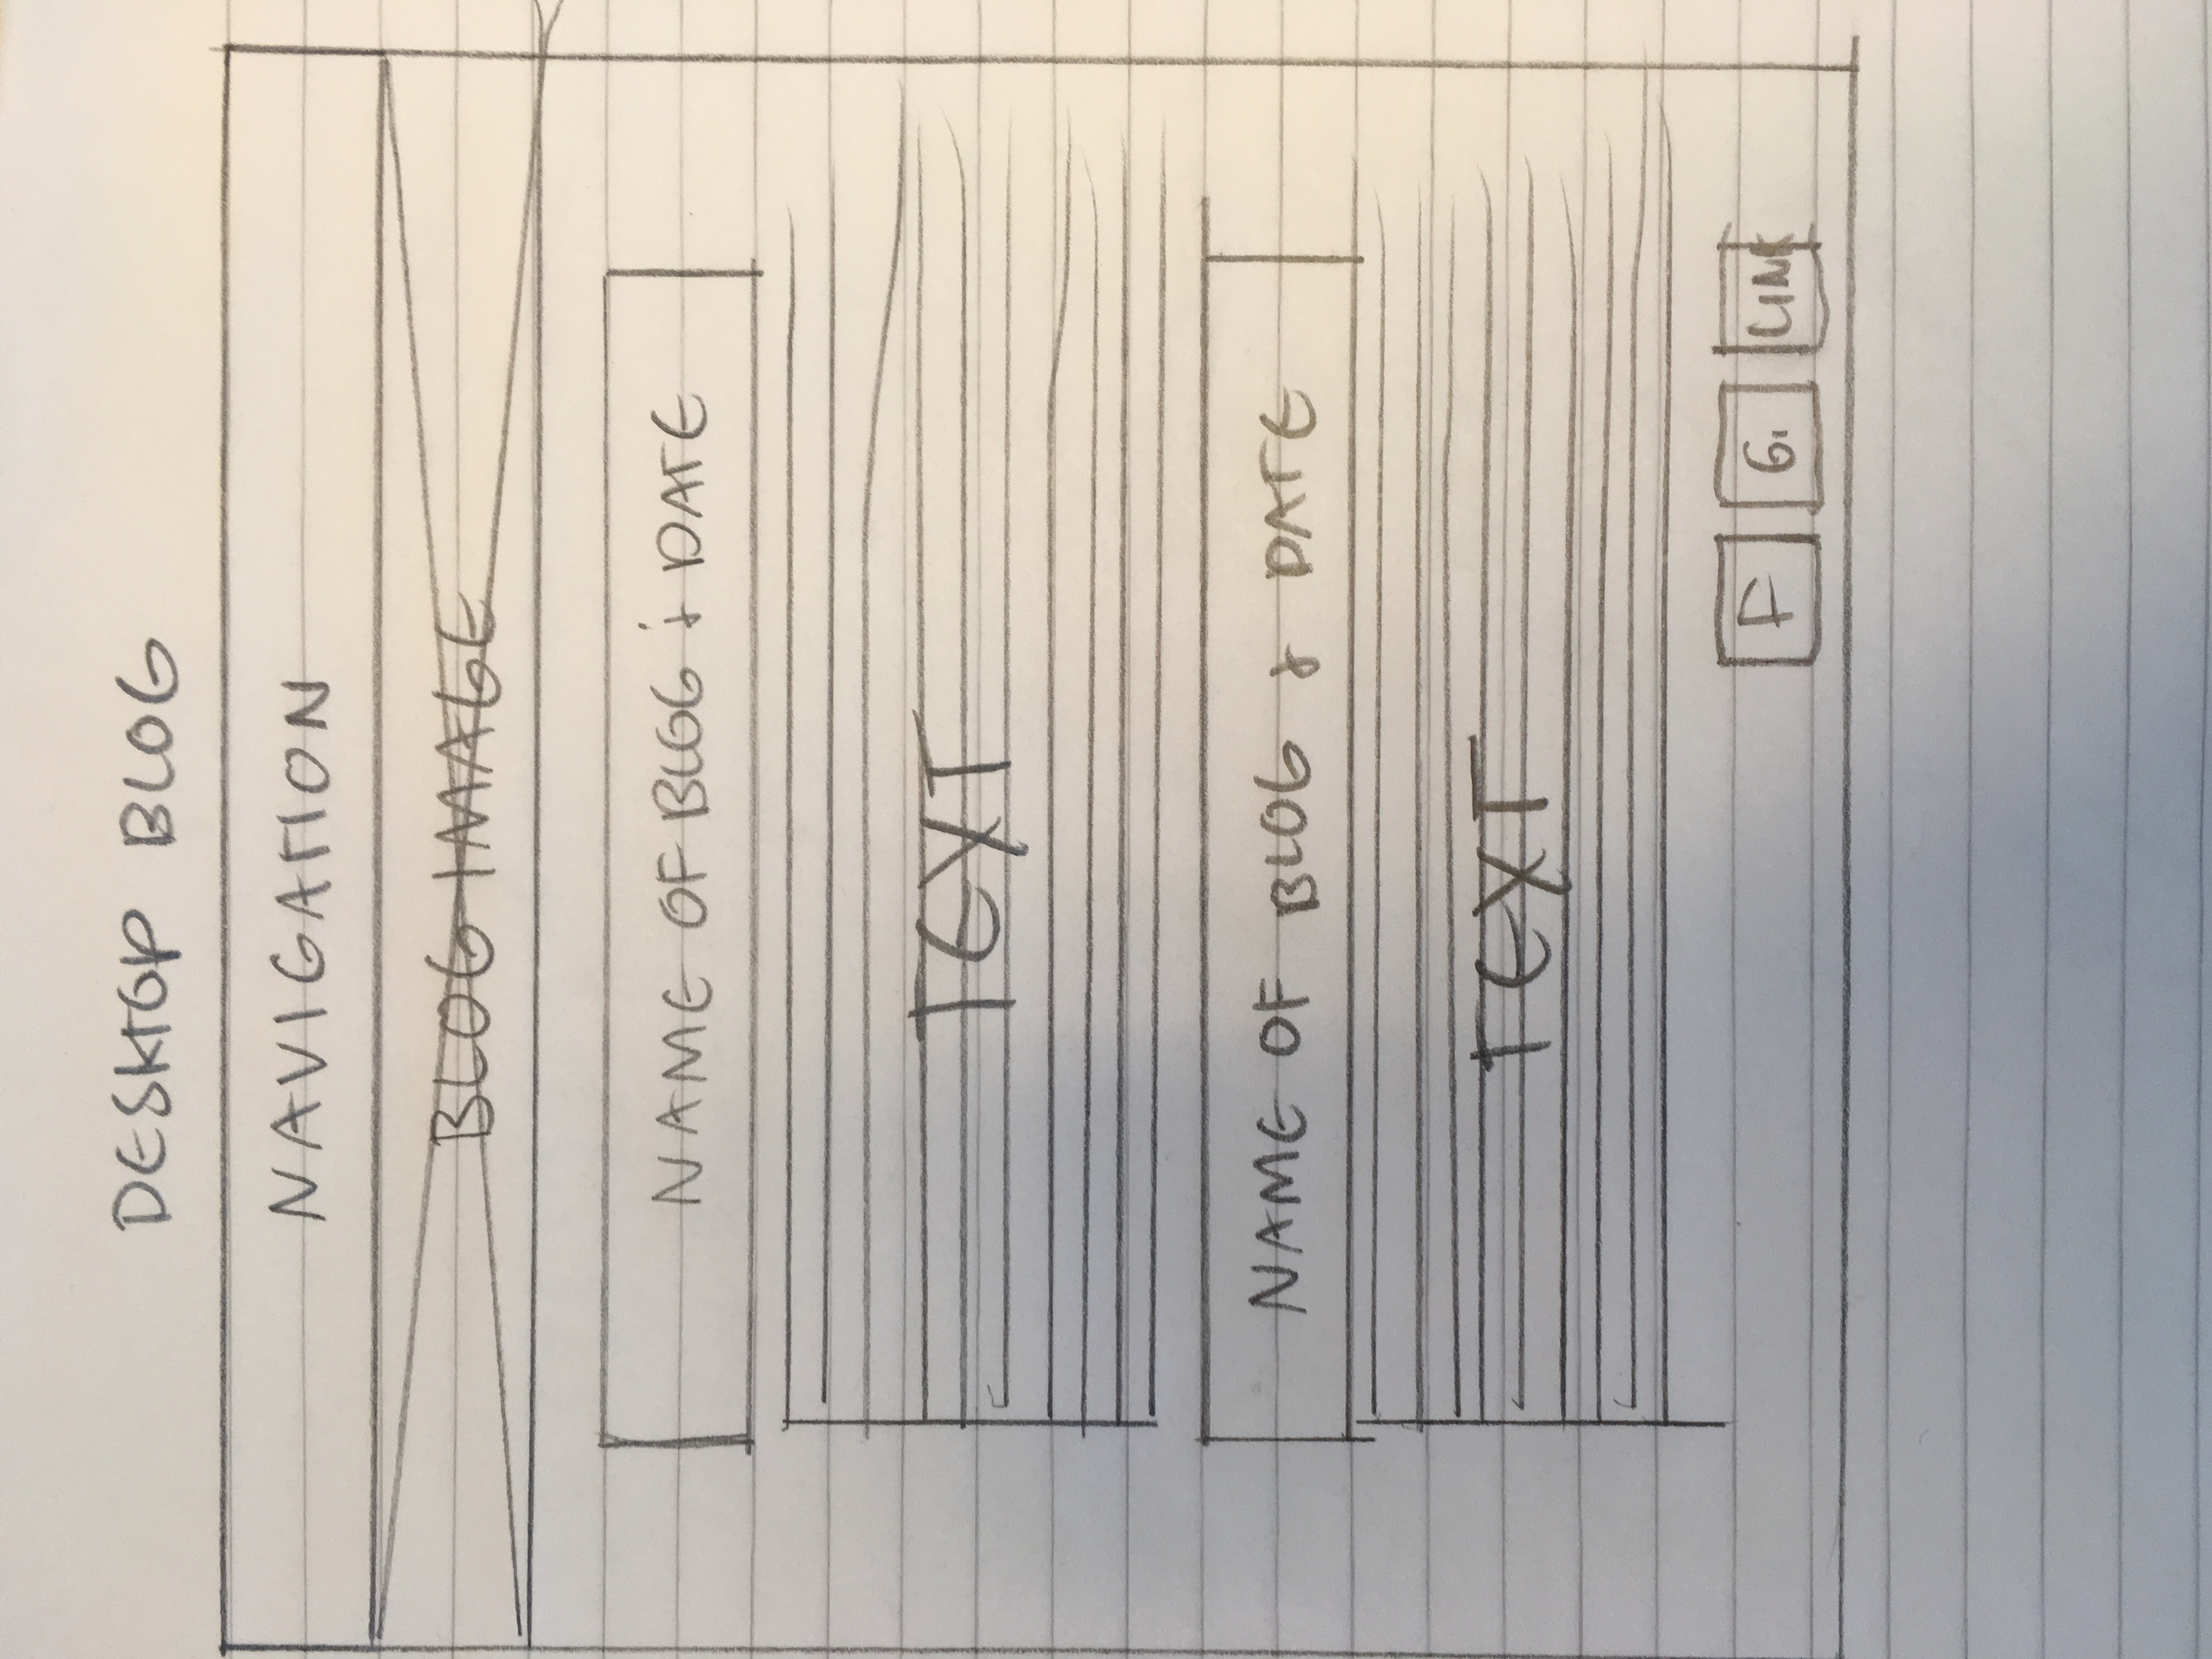 DESKTOP BLOG
NAVIGATION
BLOG IMAGE
NAME OF BLOG & DATE
TEXT
NAME OF BLOG & DATE
TEXT
F G. LINK